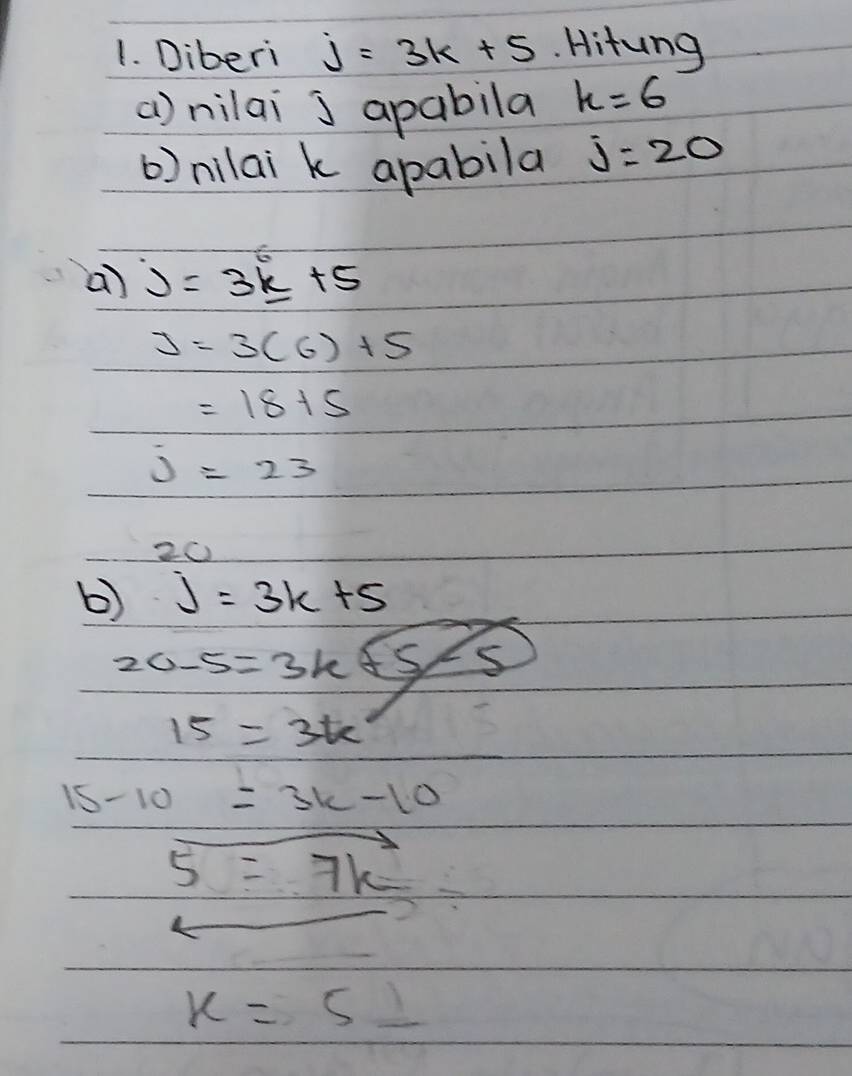 1. Diberi j = 3k + 5. Hitung
a) nilai j apabila k = 6
b) nilai k apabila j = 20
6
a) j = 3k + 5
j = 3(6) + 5
= 18 + 5
j = 23
20
b) j = 3k + 5
20 - 5 = 3k + 5 - 5
15 = 3k
15 - 10 = 3k - 10
5 = 7k
k = 5